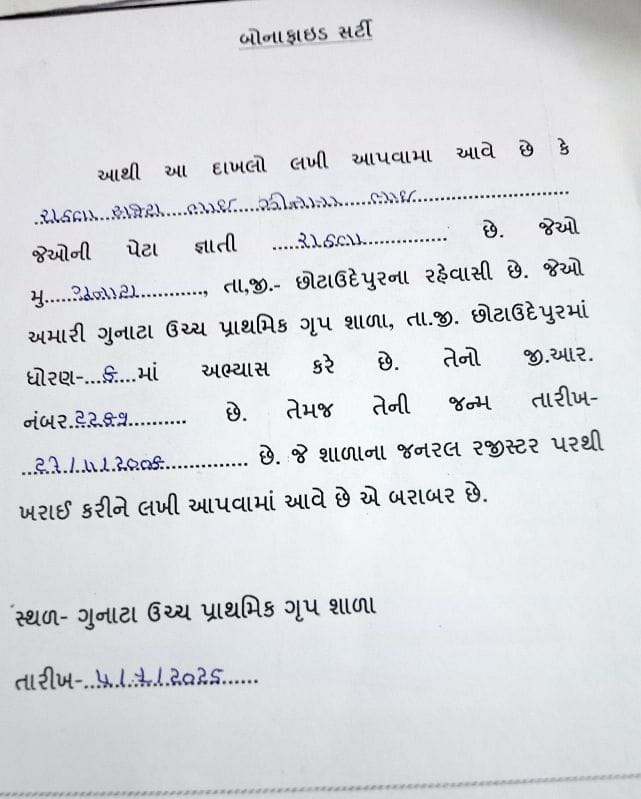 બોનાફાઇડ સર્ટી
આથી આ દાખલો લખી આપવામા આવે છે કે
રાઠવા ........ ભાઇ ........ ભાઇ
જેઓની પેટા જ્ઞાતી ......રાઠવા............... છે. જેઓ
મુ.....ગુનાટા..........., તા,જી.- છોટાઉદેપુરના રહેવાસી છે. જેઓ
અમારી ગુનાટા ઉચ્ચ પ્રાથમિક ગૃપ શાળા, તા.જી. છોટાઉદેપુરમાં
ધોરણ-...૬....માં અભ્યાસ કરે છે. તેનો જી.આર.
નંબર.૨૨૬૧.......... છે. તેમજ તેની જન્મ તારીખ-
............... છે. જે શાળાના જનરલ રજીસ્ટર પરથી
ખરાઈ કરીને લખી આપવામાં આવે છે એ બરાબર છે.
સ્થળ- ગુનાટા ઉચ્ચ પ્રાથમિક ગૃપ શાળા
તારીખ-..૫.૧.૭.૧.૨૦૨૬......